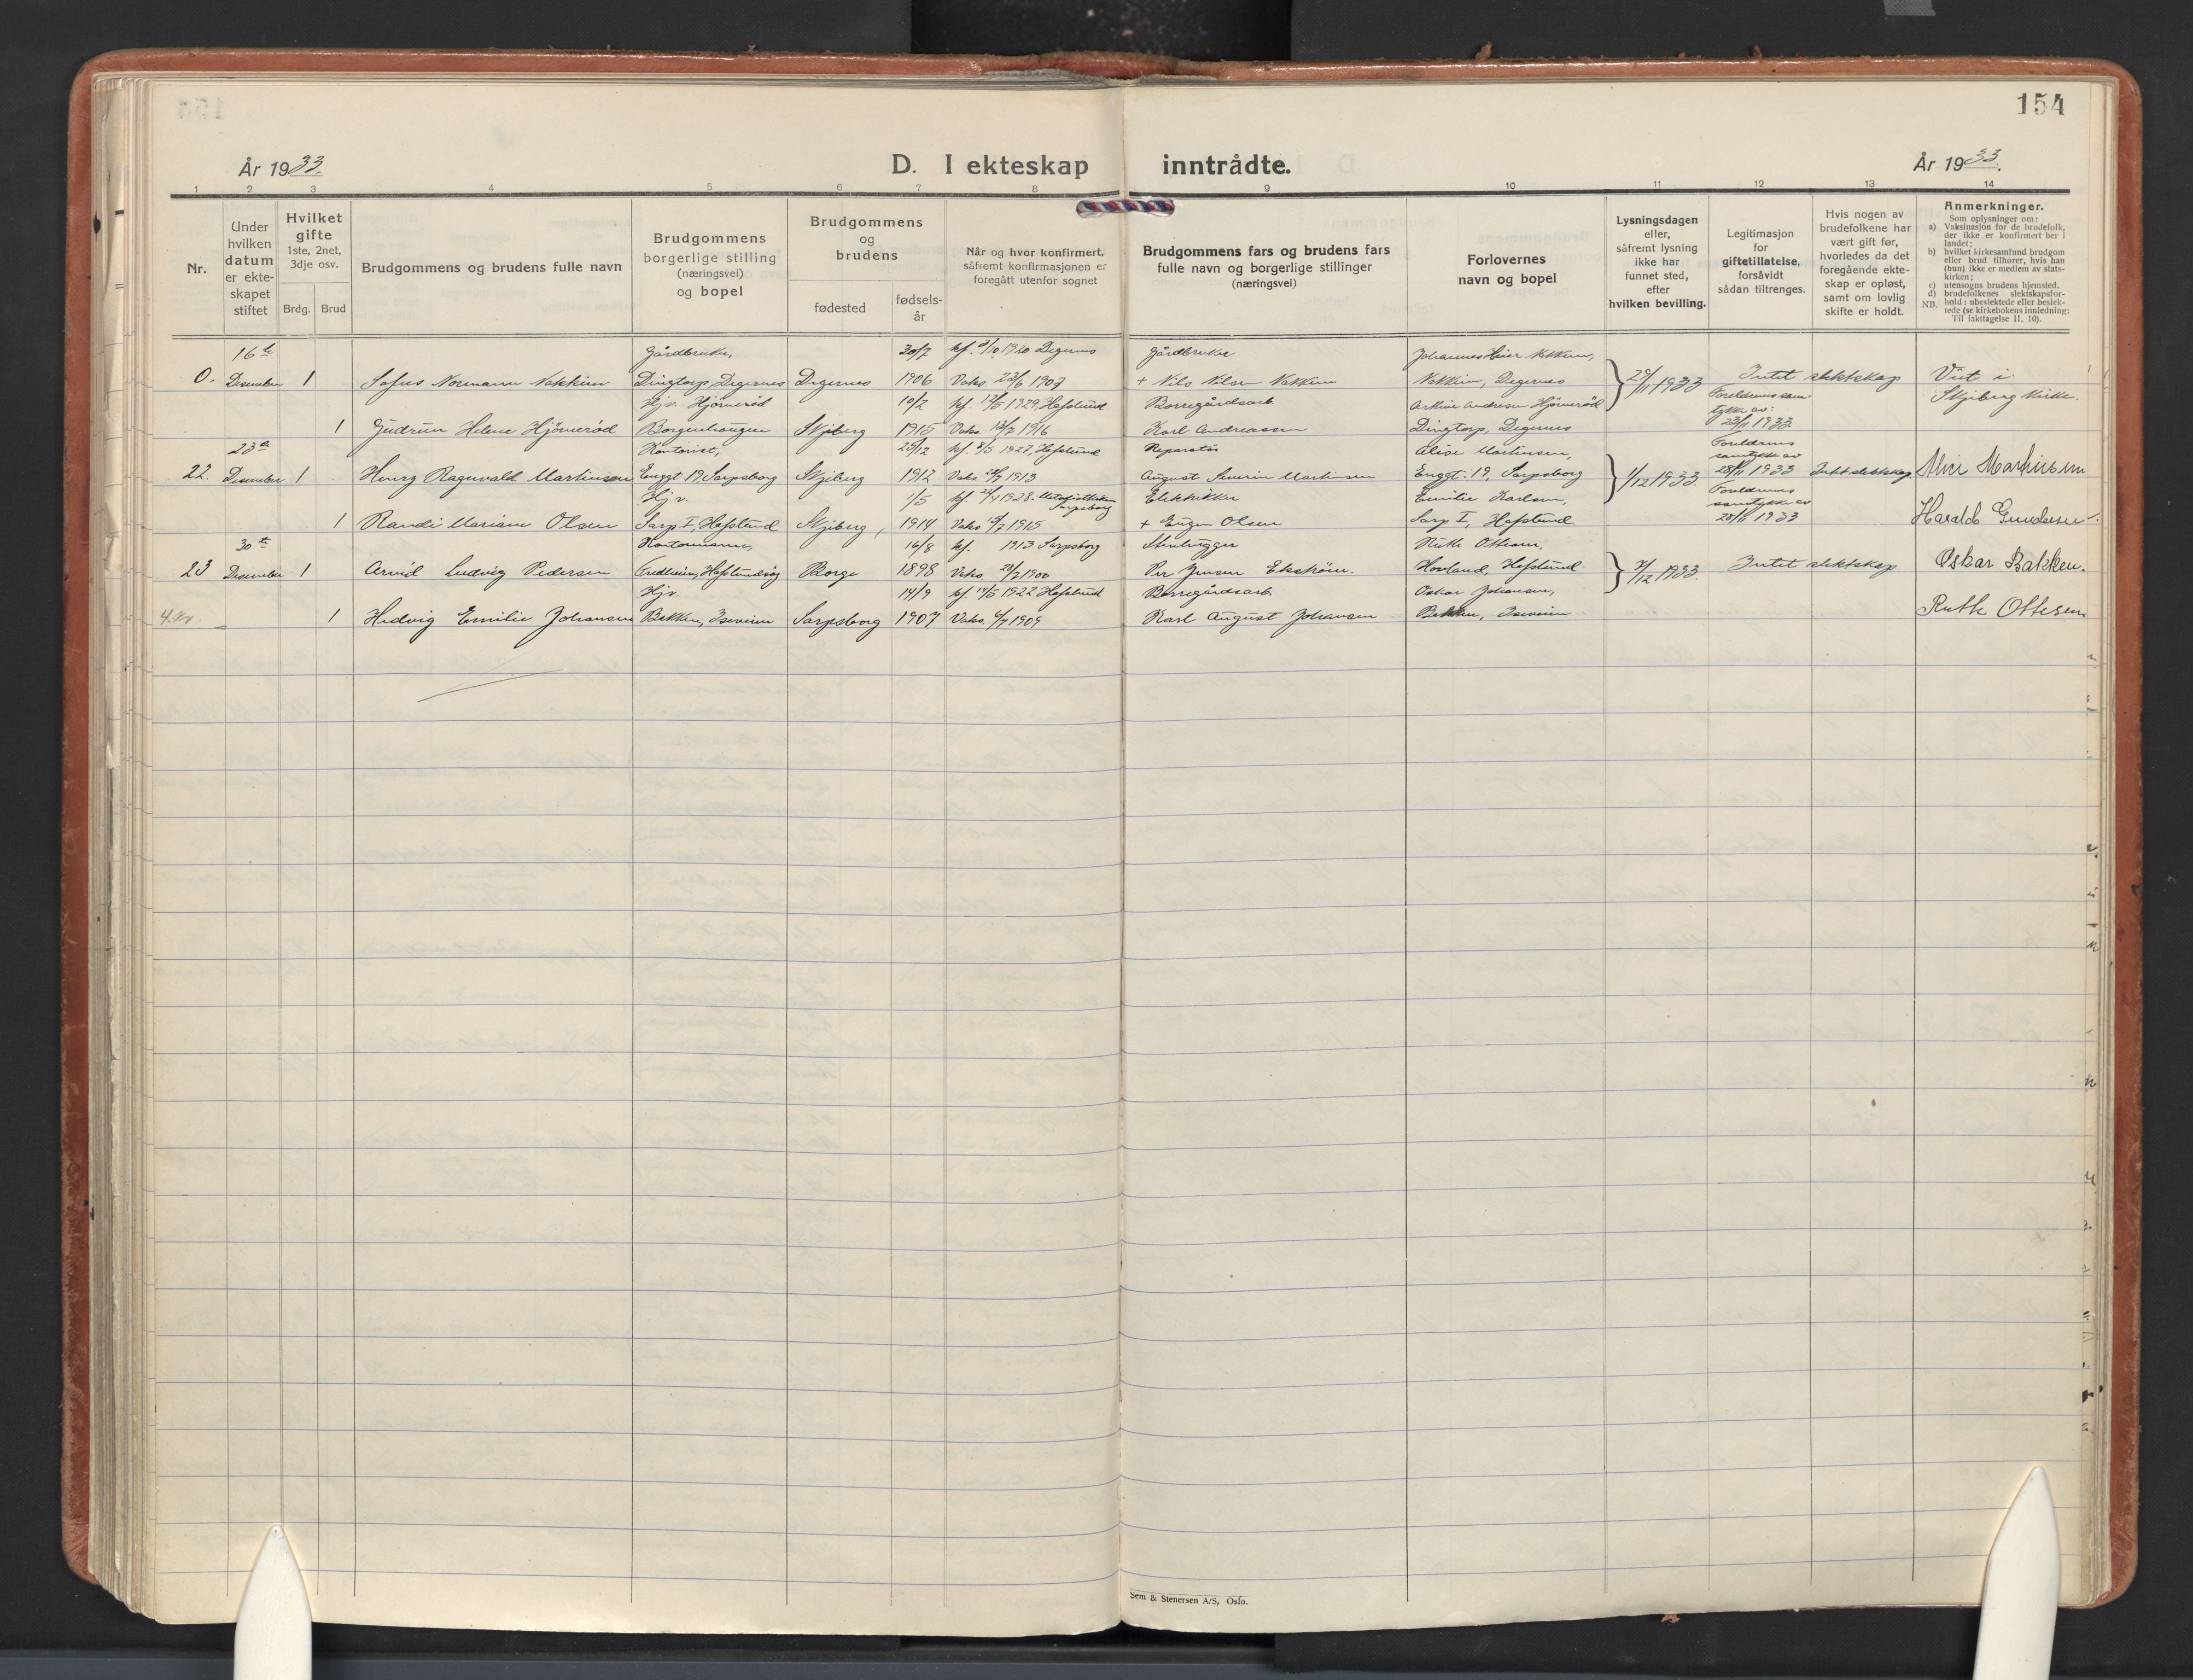 154
År 1933.
D. I ekteskap inntrådte.
År 1933.
1 2 3 4 5 6 7 8 9 10 11 12 13 14
Nr.
Under hvilken datum er ekteskapet stiftet
Hvilket gifte 1ste, 2net, 3dje osv.
Brdg. Brud
Brudgommens og brudens fulle navn
Brudgommens borgerlige stilling (næringsvei) og bopel
Brudgommens og brudens
fødested
fødsels-år
Når og hvor konfirmert, såfremt konfirmasjonen er foregått utenfor sognet
Brudgommens fars og brudens fars fulle navn og borgerlige stillinger (næringsvei)
Forlovernes navn og bopel
Lysningsdagen eller, såfremt lysning ikke har funnet sted, efter hvilken bevilling.
Legitimasjon for giftetillatelse, forsåvidt sådan tiltrenges.
Hvis nogen av brudefolkene har vært gift før, hvorledes da det foregående ekteskap er opløst, samt om lovlig skifte er holdt.
Anmerkninger.
Som oplysninger om:
a) Vaksinasjon for de brudefolk, der ikke er konfirmert her i landet;
b) hvilket kirkesamfund brudgom eller brud tilhører, hvis han (hun) ikke er medlem av statskirken;
c) utensogns brudens hjemsted.
d) brudefolkenes slektskapsforhold: ubeslektede eller beslektede (se kirkebokens innledning: Til iakttagelse II. 10).
NB.
16de Gårdbruker, 30/7 kf. 1920 Degernes Gårdbruker Johannes
0. Desember 1 Sofus Normann Nakkim Dingtorp, Degernes Degernes 1906 Vaks. 23/6 1907 + Nils Nilsen Nakkim Nakkim, Degernes 29/11 1933 Intet slektskap Viet i
Hjv. Hjørnerød 10/2 kf. 1929, Hafslund Borregårdsarb. Arthur Andresen Hjørnerød Foreldrenes sam- Skjeberg kirke.
tykke av:
1 Gudrun Helene Hjørnerød Borgenhaugen Skjeberg 1915 Vaks. 1916 Karl Andreassen Dingtorp, Degernes 23/11 1933
23de Kontorist, 25/12 kf. 1927, Hafslund Reparatør Alise Martinsen, Foreldrenes
samtykke av
22. Desember 1 Henry Ragnvald Martinsen Enggt 19, Sarpsborg Skjeberg 1912 Vaks. 1913 August Severin Martinsen Enggt. 19, Sarpsborg 1/12 1933 28/11 1933 Intet slektskap Alise Martinsen
Hjv. 1/5 kf. 1928. Metodistkirken Sarpsborg Elektriker Emilie Karlsen, Foreldrenes
samtykke av
1 Randi Mariane Olsen Sarp I, Hafslund Skjeberg 1914 Vaks. 1915 + Eugen Olsen Sarp I, Hafslund 28/11 1933 Harald Gundersen.
30te Kontormann, 16/8 kf. 1913 Sarpsborg Stenhugger Ruth Ottesen,
23 Desember 1 Arvid Ludvig Pedersen Fredheim, Borge 1898 Vaks. 1900 Per Jensen Ekström. Hovland, Hafslund 7/12 1933. Intet slektskap Oskar Bakken.
Hjv. 14/9 kf. 1922 Hafslund Borregårdsarb. Oskar Johansen,
4. kv. 1 Hedvig Emilie Johansen Bakken, Isevein Sarpsborg 1907 Vaks. 1909 Karl August Johansen Bakken, Isevein Ruth Ottesen
Sem & Stenersen A/S, Oslo.